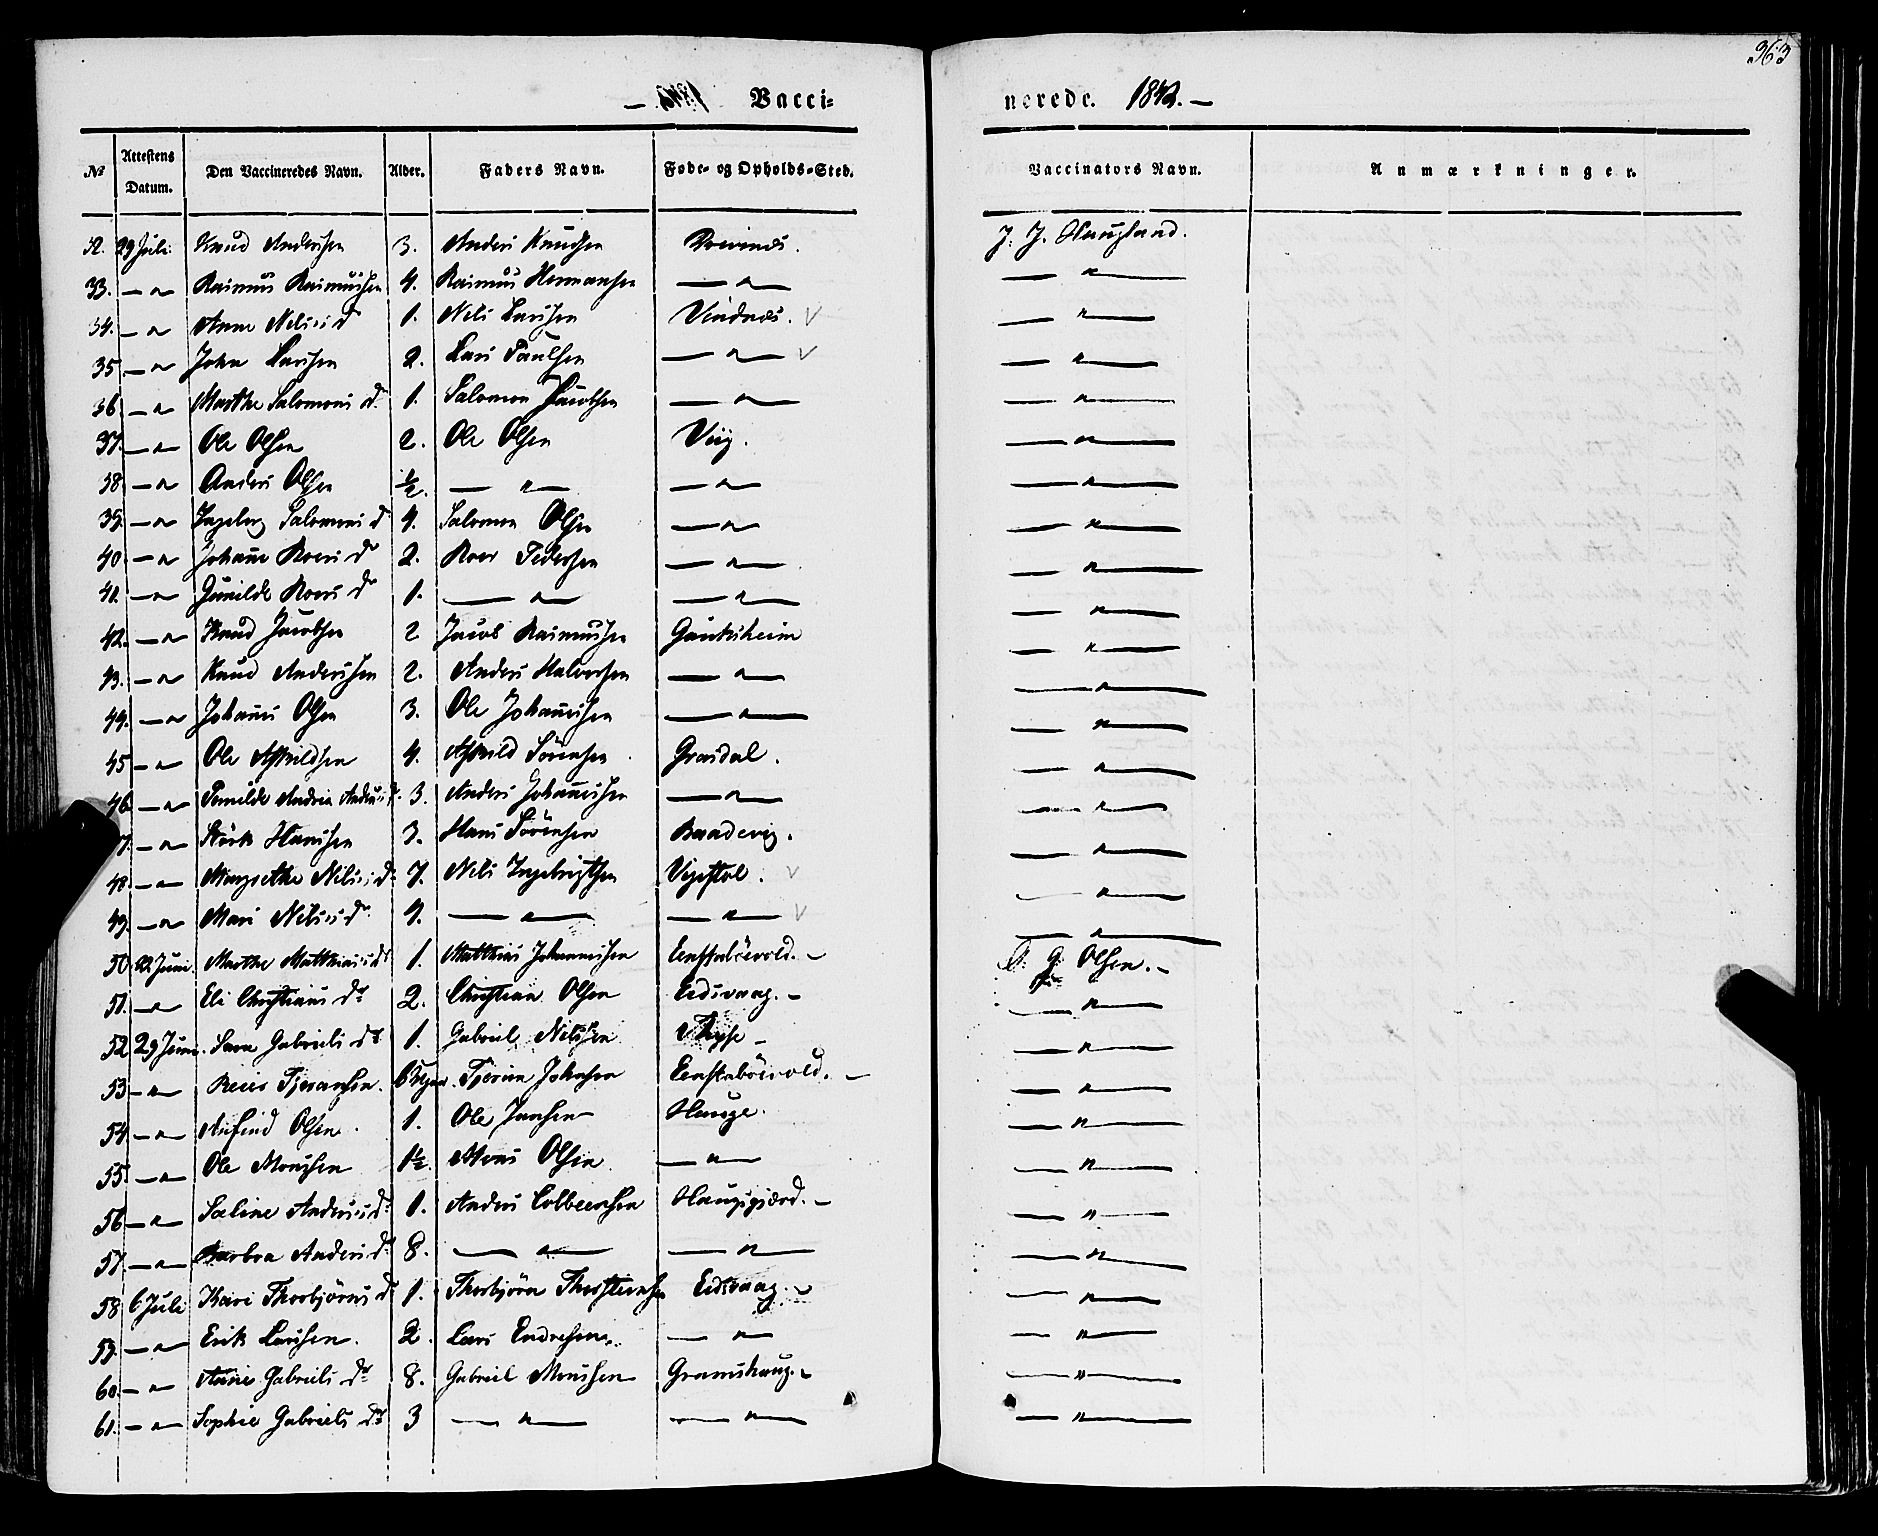 363
Vacci-
nerede. 1842.
No
Attestens Datum.
Den Vaccineredes Navn.
Alder.
Faders Navn.
Føde- og Opholds-Sted.
Vaccinators Navn.
Anmærkninger.
32. 29 Juli. Knud Andersen 3. Anders Knudsen J. J. Haugland.
33. — " Rasmus Rasmussen 4. Rasmus Hermansen — " — — " —
34. — " Anne Nelsis D 1. Nels Larsen Vindnæs. V — " —
35 — " John Larsen 2. Lars Paulsen — " — V — " —
36 — " Marthe Salomons D. 1. Salomon Jacobsen — " — — " —
37. — " Ole Olsen 2. Ole Olsen Viig. — " —
38 — " Anders Olsen ½. — " — — " — — " —
39. — " Ingeborg Salomons D 4. Salomon Olsen — " — — " —
40 — " Johanne Roers Dr 2. Roer Pedersen — " — — " —
41. — " Gunilde Roers Dr 1. — " — — " — — " —
42. — " Knud Jacobsen 2 Jacob Rasmussen Gauksheim — " —
43. — " Knud Andersen 2. Anders Halvorsen — " — — " —
44. — " Johannes Olsen 3. Ole Johannesen — " — — " —
45 — " Ole Askildsen 4. Askild Sørensen Grasdal. — " —
46 — " Pernilde Andrea Anders D. 3. Anders Johannesen — " — — " —
7. — " Størk Hansen 3. Hans Sørensen Baadevig. — " —
48. — " Margrethe Nelsis D 7. Nels Ingebrigtsen V — " —
49. — " Mari Nelsis Dr 4. — " — — " — V — " —
50. 22 Juni. Marthe Matthias D 1. Matthias Johannesen Eenstabøevold. — G. Olsen. —
51. — " Eli Christians Dr 2. Christian Olsen Eidsvaag. — — " —
52 29 Juni. Sara Gabriels Dr 1. Gabriel Nelsen — " —
53 — " Reier Tjeransen. Tjeran Johnsen Eenstabøevold. — — " —
54. — " Arfind Olsen. 1. Ole Jansen Hauge. — " —
55. — " Ole Monsen 1½. Mons Olsen — " — — " —
56 — " Seline Andersis D. 1. Anders Colbeensen Haugsgjærd. — — " —
57. — " Barbra Anders D. 8. — " — — " — — " —
58 6 Juli Kari Thorbjørns D 1. Thorbjørn Thorsteensen Eidsvaag. — — " —
59. — " Erik Larsen. 2. Lars Endresen — " — — " —
60. — " Anne Gabriels Dr 8. Gabriel Monsen Gramshaug. — — " —
61. — " Sophie Gabriels Dr 3 — " — — " — — " —